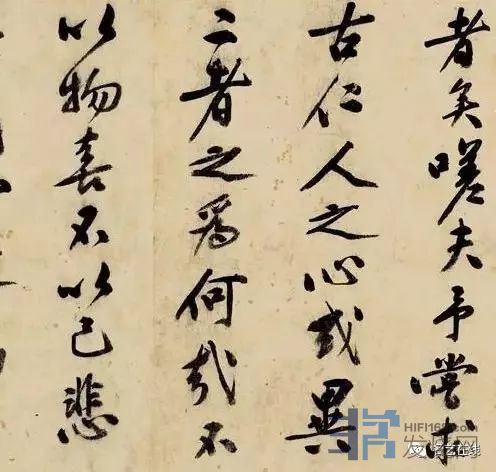 者矣嗟夫予嘗求
古仁人之心或異
二者之為何哉不
以物喜不以己悲
HIFI168.com
发烧网
艺在线